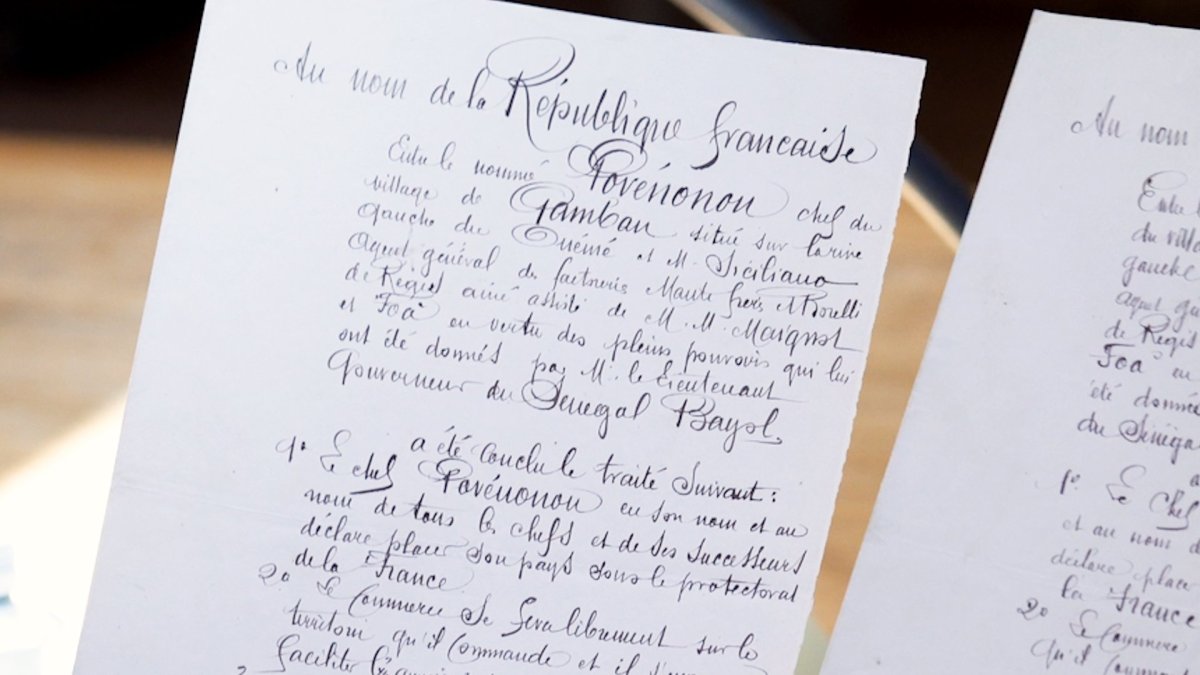 Au nom de la République francaise
Entre le nommé Povénonou chef du
village de Gamban situé sur la rive
gauche du Ouémé et M. Siciliano
Agent général des factoreries Mante frères & Borelli
de Régis ainé assisté de M. M. Maignot
et Foà en vertu des pleins pouvoirs qui lui
ont été donnés par M. le Lieutenant
Gouverneur du Sénégal Bayol
a été conclu le traité Suivant :
1º Le chef Povénonou en son nom et au
nom de tous les chefs et de ses successeurs
déclare placer son pays sous le protectorat
de la France
2º Le Commerce se fera librement sur le
territoire qu'il commande et il
faciliter
Au nom
Entre
du villa
gauche
agent g
de Régis
Foà en
été donné
du Sénéga
1º Le chef
et au nom d
déclare place
la France
2º Le Commerce
qu'il comm